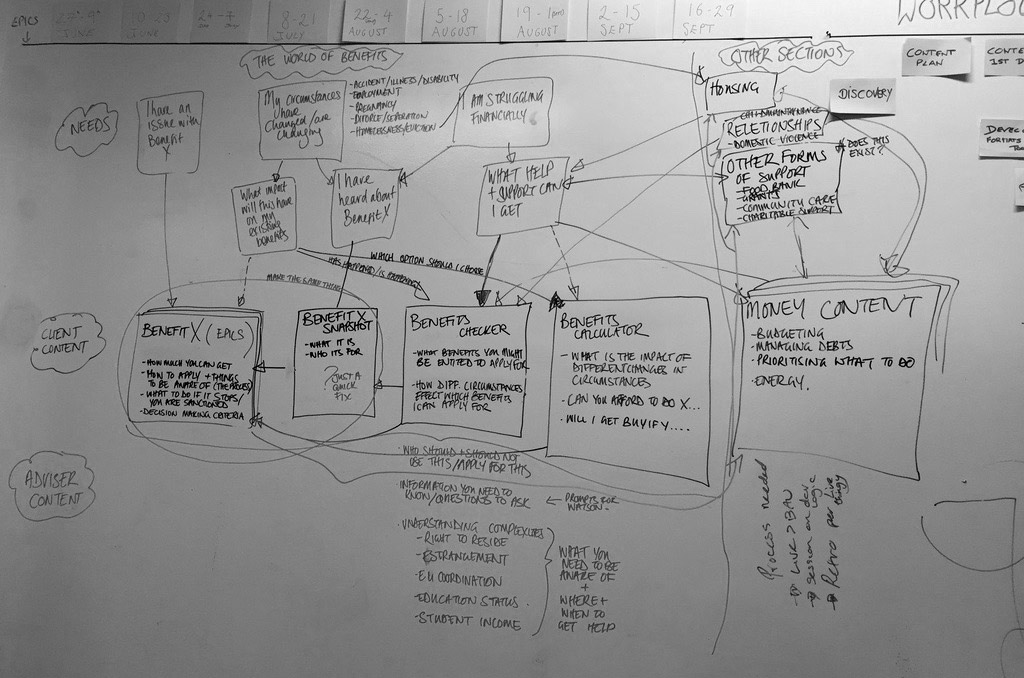 EPICS
JUNE
JUNE
8-21
JULY
AUGUST
5-18
AUGUST
19-1
AUGUST
2-15
SEPT
16-29
SEPT
THE WORLD OF BENEFITS
OTHER SECTIONS
CONTENT
PLAN
CONTE
1ST D
NEEDS
I have an
issue with
Benefit
X
My circumstances
have
changed/are
changing
- ACCIDENT/ILLNESS/DISABILITY
- EMPLOYMENT
- PREGNANCY
- DIVORCE/SEPARATION
- HOMELESSNESS/EVICTION
I AM STRUGGLING
FINANCIALLY
HOUSING
DISCOVERY
RELETIONSHIPS
- DOMESTIC VIOLENCE
OTHER FORMS
OF SUPPORT
- FOOD BANK
- GRANTS
- COMMUNITY CARE
- CHARITABLE SUPPORT
DOES THIS
EXIST?
DEVEL
What impact
will this have
on my
existing
benefits
I have
heard about
Benefit X
WHAT HELP
+ SUPPORT CAN
I GET
WHICH OPTION SHOULD I CHOOSE
HAS HAPPENED/IS HAPPENING
MAKE THE SAME THING
CLIENT
CONTENT
BENEFIT X (EPICS)
- HOW MUCH YOU CAN GET
- HOW TO APPLY + THINGS
TO BE AWARE OF (THE PROCESS)
- WHAT TO DO IF IT STOPS/
YOU ARE SANCTIONED
- DECISION MAKING CRITERIA
BENEFIT X
SNAPSHOT
- WHAT IT IS
- WHO ITS FOR
? JUST A
QUICK
FIX
BENEFITS
CHECKER
- WHAT BENEFITS YOU MIGHT
BE ENTITLED TO APPLY FOR
- HOW DIFF. CIRCUMSTANCES
EFFECT WHICH BENEFITS
I CAN APPLY FOR
BENEFITS
CALCULATOR
- WHAT IS THE IMPACT OF
DIFFERENT CHANGES IN
CIRCUMSTANCES
- CAN YOU AFFORD TO DO X...
- WILL I GET BUY IF Y....
MONEY CONTENT
- BUDGETING
- MANAGING DEBTS
- PRIORITISING WHAT TO DO
- ENERGY.
ADVISER
CONTENT
- WHO SHOULD + SHOULD NOT
USE THIS/APPLY FOR THIS
- INFORMATION YOU NEED TO
KNOW/QUESTIONS TO ASK
← PROMPTS FOR
WATSON.
- UNDERSTANDING COMPLEXITIES
- RIGHT TO RESIDE
- ESTRANGEMENT
- EU COORDINATION
- EDUCATION STATUS.
- STUDENT INCOME
WHAT YOU
NEED TO BE
AWARE OF
+
WHERE +
WHEN TO
GET HELP
Process needed
→ LIVE > BAU
→ session on dev
logic
→ Retro per live
thingy